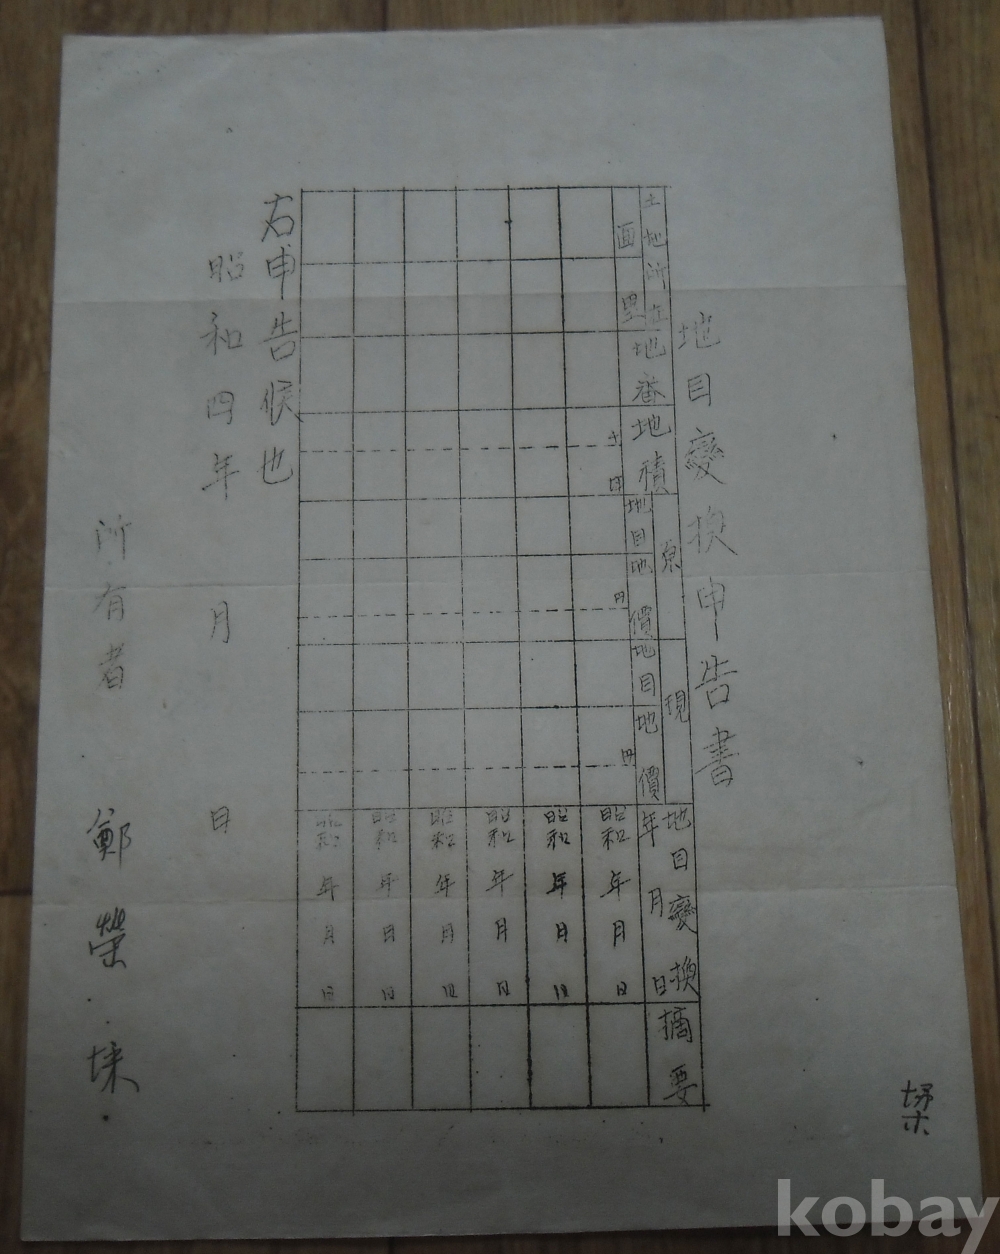 地目變換申告書
土地所在
面
里
地番
地積
原
地目
地價
円
現
地目
地價
円
地目變換
年月日
摘要
昭和 年 月 日
昭和 年 月 日
昭和 年 月 日
昭和 年 月 日
昭和 年 月 日
昭和 年 月 日
右申告候也
昭和四年 月 日
所有者 鄭榮埰
kobay